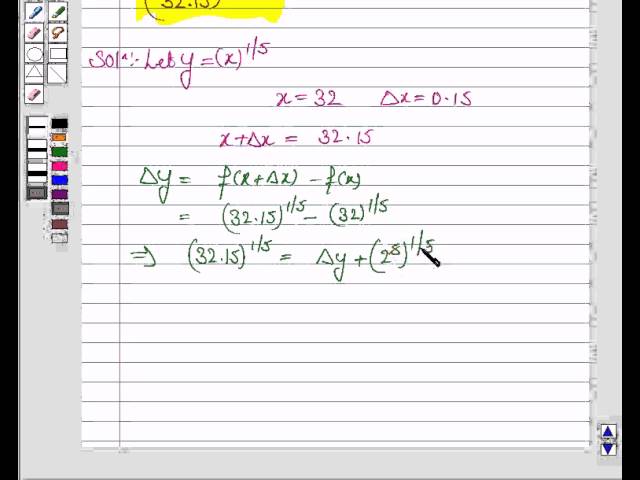 (32.15)
Solⁿ:- Let y = (x)^1/5
x = 32 Δx = 0.15
x+Δx = 32.15
Δy = f(x+Δx) - f(x)
= (32.15)^1/5 - (32)^1/5
⇒ (32.15)^1/5 = Δy + (2^5)^1/5